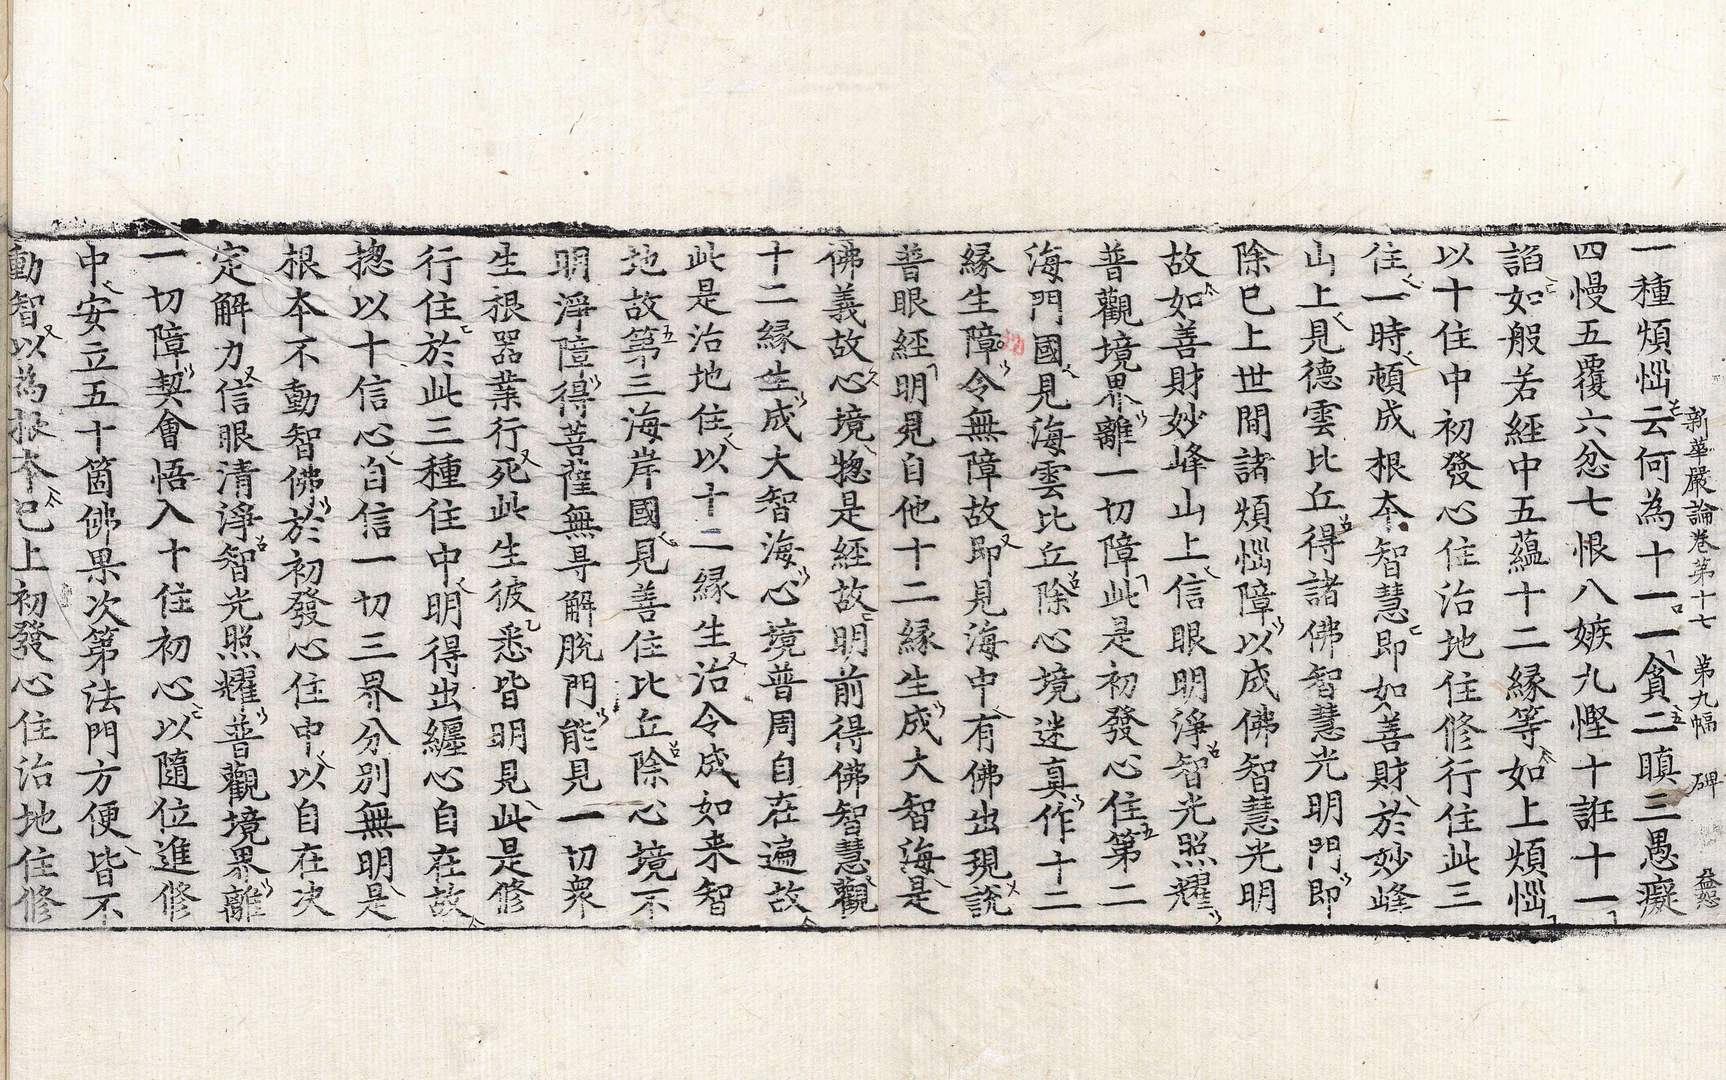 新華嚴論卷第十七　第九幅　碑　益忽
一種煩惱云何為十一一貪二瞋三愚癡
四慢五覆六忿七恨八嫉九慳十誑十一
諂如般若經中五蘊十二緣等如上煩惱
以十住中初發心住治地住修行住此三
住一時頓成根本智慧即如善財於妙峰
山上見德雲比丘得諸佛智慧光明門即
除已上世間諸煩惱障以成佛智慧光明
故如善財妙峰山上信眼明淨智光照耀
普觀境界離一切障此是初發心住第二
海門國見海雲比丘除心境迷真作十二
緣生障令無障故即見海中有佛出現說
普眼經明見自他十二緣生成大智海是
佛義故心境惣是經故明前得佛智慧觀
十二緣生成大智海心境普周自在遍故
此是治地住以十二緣生治令成如来智
地故第三海岸國見善住比丘除心境不
明淨障得菩薩無㝵解脫門能見一切衆
生根器業行死此生彼悉皆明見此是修
行住於此三種住中明得出纏心自在故
揔以十信心自信一切三界分別無明是
根本不動智佛於初發心住中以自在決
定解力信眼清淨智光照耀普觀境界離
一切障契會悟入十住初心以隨位進修
中安立五十箇佛果次第法門方便皆不
動智以為根本已上初發心住治地住修